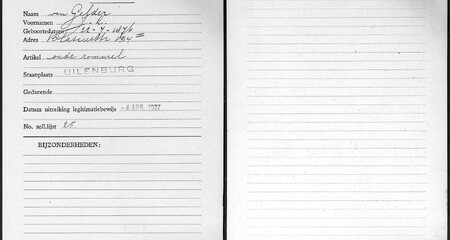 Naam van Gelder
Voornamen J. L.
Geboortedatum 22-4-1876
Adres Blasiusstr
Artikel oude rommel
Staanplaats UILENBURG
Gedurende
Datum uitreiking legitimatiebewijs APR. 1937
No. soll.lijst 20.
BIJZONDERHEDEN: